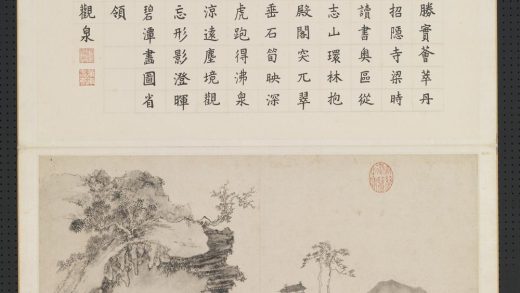 勝實薈萃丹
招隱寺梁時
讀書奧區從
志山環林抱
殿閣突兀翠
垂石筍映深
虎跑得沸泉
涼遠塵境觀
忘形影澄暉
碧潭畫圖省
領
觀泉